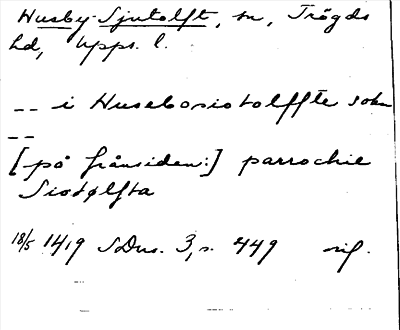 Husby-Sjutolft, sn, Trögds
hd, Upps. l.
-- i Husebosiotolffte sokn
--
[på frånsiden:] parrochie
Siotølfta
18/5 1419 SDns. 3, s. 449